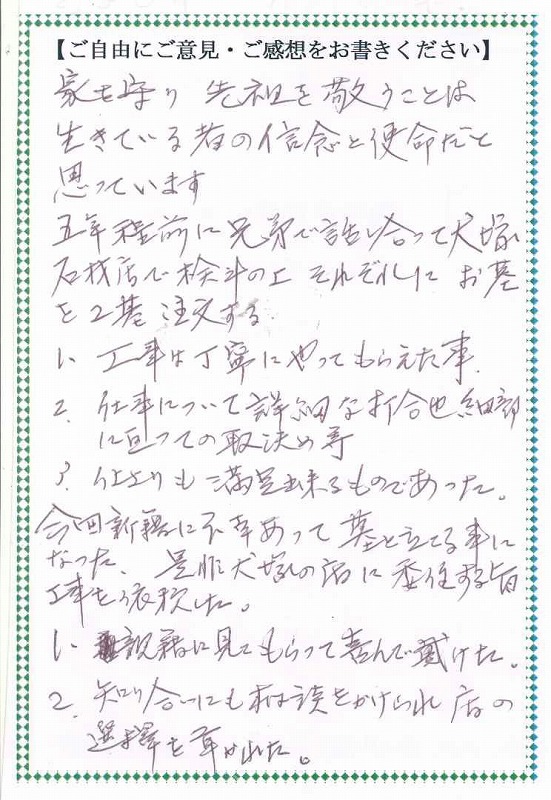 【ご自由にご意見・ご感想をお書きください】
家を守り 先祖を敬うことは
生きている者の信念と使命だと
思っています
五年程前に兄弟で話し合って犬塚
石材店で検討の上 それぞれに お墓
を2基 注文する
1. 工事は丁寧にやってもらえた事.
2. 仕事について詳細な打合せ 細部
に亘っての取決め等
3. 仕上りも満足出来るものであった。
今回新 に不幸あって 墓を立てる事に
なった、是非犬塚の店に委任する旨
工事を依頼した。
1. 親籍に見てもらって喜んで戴けた。
2. 知り合いにも相談をかけられ 店の
選択を された。